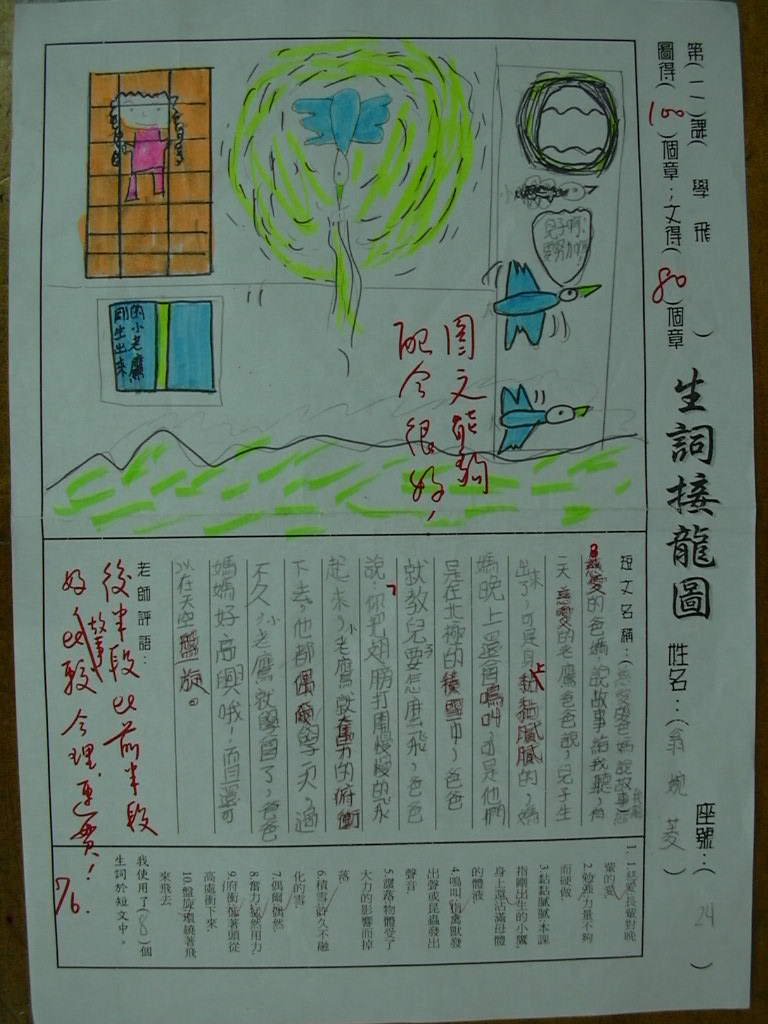 第(一一)課( 學飛 )
圖得(100)個章;文得(80)個章
生詞接龍圖
姓名:(翁婉菱)
座號:( 24 )
兒子啊!
要努加啊!
剛生出來
的小老鷹
圖文能夠
配合很好!
短文名稱:(
慈愛的爸媽說故事給我聽,有
一天慈愛的老鷹爸爸說,兒子生
出來了,可是身上黏黏膩膩的,媽
媽晚上還會鳴叫,可是他們
是在北極的積雪中,爸爸
就教兒子要怎麼飛,爸爸
說:「你把翅膀打開慢慢的飛
起來,小老鷹就奮力的俯衝
下去,他都偶爾學一次,過
不久小老鷹就學會了,爸爸
媽媽好高興哦!而且還可
以在天空盤旋。
老師評語:
後半段比前半段
故事
好,比較合理、連貫!
76.
1.慈愛長輩對晚
輩的愛
2.勉強力量不夠
而硬做
3.黏黏膩膩本課
指剛出生的小鷹
身上還沾滿母體
的體液
4.鳴叫指禽獸發
出聲或昆蟲發出
聲音
5.墜落物體受了
大力的影響而掉
落
6.積雪許久不融
化的雪
7.偶爾偶然
8.奮力猛然用力
9.俯衝低著頭從
高處衝下來
10.盤旋環繞著飛
來飛去
我使用了( 8 )個
生詞於短文中。